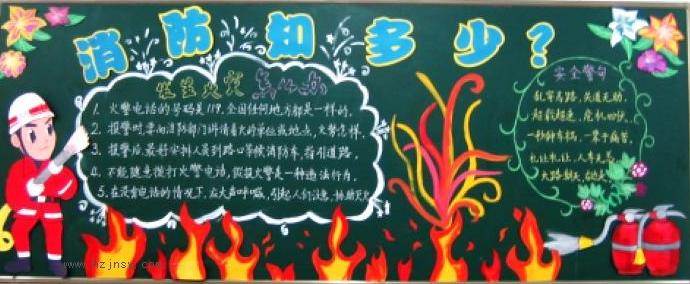 消防知多少?
发生火灾怎么办
1. 火警电话的号码是119,全国任何地方都是一样的。
2. 报警时要向消防部门讲清着火的单位或地点,火势怎样。
3. 报警后最好安排人员到路口等候消防车,指引道路。
4. 不能随意拨打火警电话,假报火警是一种违法行为。
5. 在没有电话的情况下,应大声呼喊,引起人们注意,协助灭火
安全警句
乱穿马路,失道无助,
超载超速,危机四伏,
一秒钟车祸,一辈子痛苦,
礼让礼让,人车无恙
大路朝天